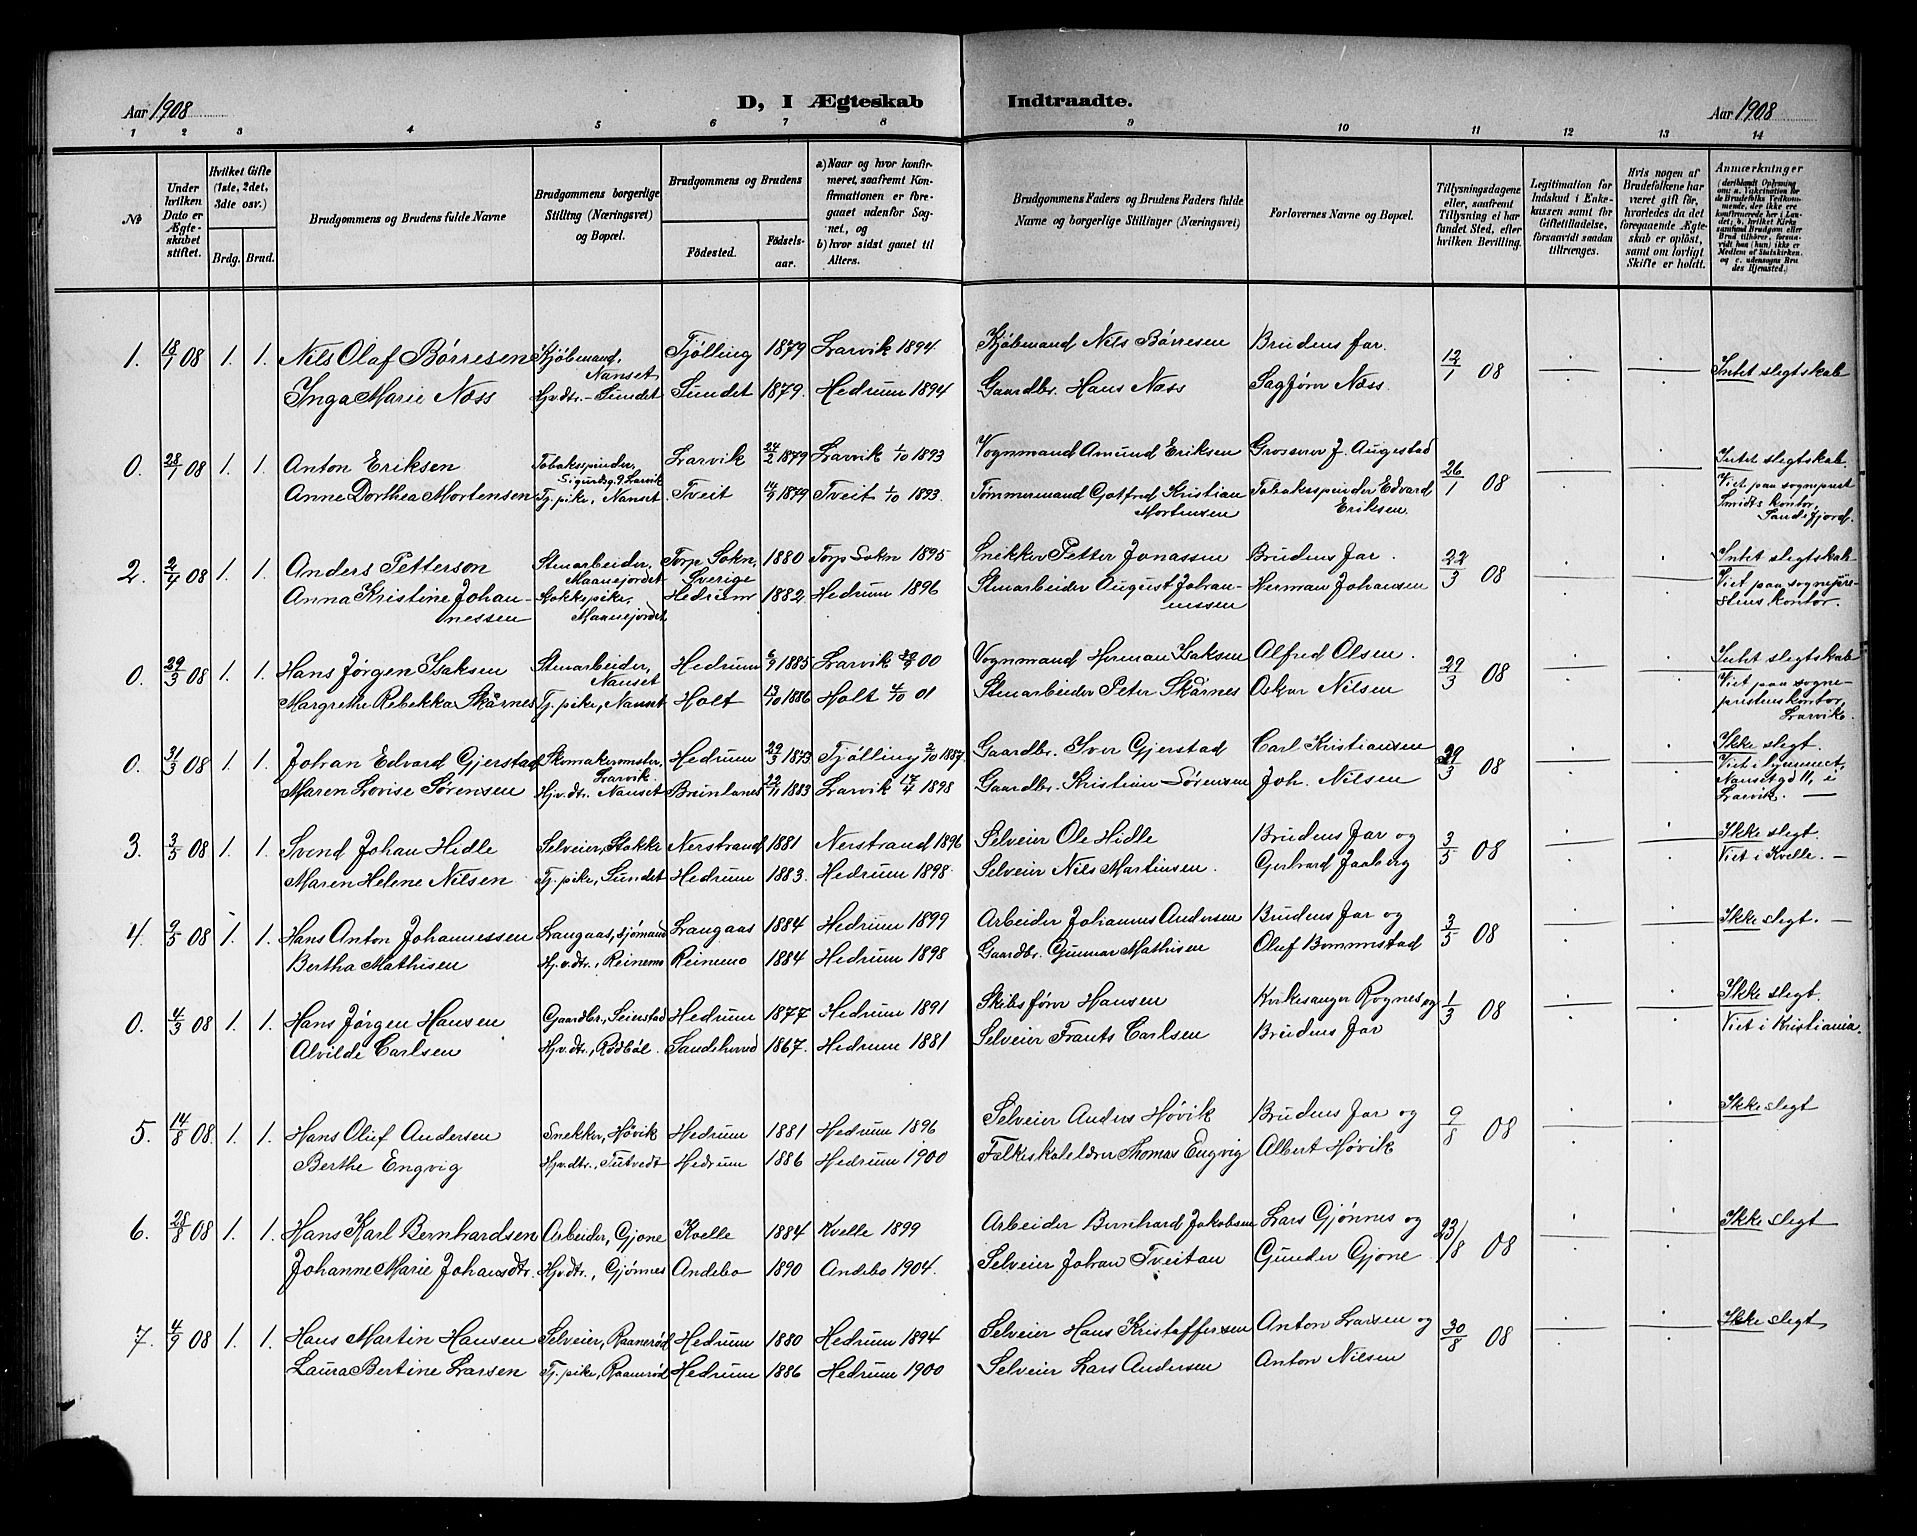 Aar 1908
D, I Ægteskab Indtraadte.
Aar 1908
1 2 3 4 5 6 7 8 9 10 11 12 13 14
№
Under hvilken Dato er Ægteskabet stiftet.
Hvilket Gifte (1ste, 2det, 3die osv.)
Brdg. Brud.
Brudgommens og Brudens fulde Navne
Brudgommens borgerlige Stilling (Næringsvei) og Bopæl.
Brudgommens og Brudens
Fødested. Fødselsaar.
a) Naar og hvor konfirmeret, saafremt Konfirmationen er foregaaet udenfor Sognet, og
b) hvor sidst gaaet til Alters.
Brudgommens Faders og Brudens Faders fulde Navne og borgerlige Stillinger (Næringsvei)
Forlovernes Navne og Bopæl.
Tillysningsdagene eller, saafremt Tillysning ei har fundet Sted, efter hvilken Bevilling.
Legitimation for Indskud i Enkekassen samt for Giftetilladelse, forsaavidt saadan tiltrænges.
Hvis nogen af Brudefolkene har været gift før, hvorledes da det foregaaende Ægteskab er opløst, samt om lovligt Skifte er holdt.
Anmærkninger
(deriblandt Oplysning om: a. Vakcination for de Brudefolks Vedkommende, der ikke ere konfirmerede her i Landet; b. hvilket Kirkesamfund Brudgom eller Brud tilhører, forsaavidt han (hun) ikke er Medlem af Statskirken, og c. udensogns Brudes Hjemsted.)
1. 18/1 08 1. 1. Nils Olaf Børresen Kjøbmand, Nanset Tjølling 1879 Larvik 1894 Kjøbmand Nils Børresen Brudens far. 12/1 08 Intet slegtskab
Inga Marie Næss Hjv.dtr. - Sundet Sundet 1879. Hedrum 1894 Gaardbr. Hans Næss Sagfører Næss.
0. 28/1 08 1. 1. Anton Eriksen Tobaksspinder, Sigurdsg. 9 Larvik Larvik 24/2 1879 Larvik 1/10 1893 Vognmand Amund Eriksen Grosserer J. Augestad 26/1 08 Intet slegtskab.
Anne Dorthea Mortensen Tj. pike, Nanset Tveit 14/9 1879 Tveit 1/10 1893. Tømmermand Gotfred Kristian Mortensen Tobaksspinder Edvard Eriksen Viet paa sogneprest Smidts kontor, Sandefjord.
2. 2/4 08 1. 1. Anders Petterson Stenarbeider, Maanejordet Torp Sokn, Sverige 1880 Torp Sokn 1895 Snekker Petter Jonassen Brudens far. 22/3 08 Intet slegtskab
Anna Kristine Johannessen Kokkepike, Maanejordet Hedrum 1882 Hedrum 1896 Stenarbeider August Johannessen Herman Johansen Viet paa sogneprestens kontor.
0. 29/3 08 1. 1. Hans Jørgen Isaksen Stenarbeider, Nanset Hedrum 6/9 1885 Larvik 00 Vognmand Herman Isaksen Alfred Olsen. 29/3 08 Intet slegtskab
Margrethe Rebekka Skårnes Tj. pike, Nanset Holt 13/10 1886 Holt 4/10 01 Stenarbeider Peter Skårnes Oskar Nilsen Viet paa sogneprestens kontor, Larvik.
0. 31/3 08 1. 1. Johan Edvard Gjerstad Skomakermster, Larvik. Hedrum 29/3 1873 Tjølling 2/10 1887. Gaardbr. Iver Gjerstad Carl Kristiansen 29/3 08 Ikke slegt.
Maren Lovise Sørensen Hjv.dtr. Nanset Brunlanes 22/11 1883 Larvik 17/4 1898 Gaardbr. Kristian Sørensen Joh. Nilsen Viet i hjemmet, Nansetgd 11, i Larvik. —
3. 3/5 08 1. 1. Svend Johan Hidle Selveier, Stokke Nerstrand 1881 Nerstrand 1896 Selveier Ole Hidle Brudens far og 3/5 08 Ikke slegt.
Maren Helene Nilsen Tj. pike, Sundet Hedrum 1883. Hedrum 1898. Selveier Nils Martinsen. Gerhard Jaaberg Viet i Kvelle. —
4. 9/5 08 1. 1. Hans Anton Johannessen Langaas, sjømand Langaas 1884 Hedrum 1899 Arbeider Johannes Andersen Brudens far og 3/5 08 Ikke slegt. —
Bertha Mathisen Hjv.dtr., Reinemo Reinemo 1884 Hedrum 1898 Gaardbr. Gunnar Mathisen Oluf Bommestad
0. 4/3 08 1. 1. Hans Jørgen Hansen Gaardbr., Seierstad Hedrum 1877 Hedrum 1891 Skibsfører Hansen Kirkesanger Rognes og 1/3 08 Ikke slegt.
Alvilde Carlsen Hjv.dtr., Rødbøl. Sandeherred 1867. Hedrum 1881 Selveier Frants Carlsen Brudens far Viet i Kristiania.
5. 14/8 08. 1. 1. Hans Oluf Andersen Snekker, Høvik Hedrum 1881 Hedrum 1896 Selveier Anders Høvik Brudens far og 9/8 08 Ikke slegt
Berthe Engvig Hjv.dtr., Tutvedt Hedrum 1886 Hedrum 1900 Folkeskolelærer Thomas Engvig Albert Høvik
6. 28/8 08 1. 1. Hans Karl Bernhardsen Arbeider, Gjone Kvelle 1884 Kvelle 1899 Arbeider Bernhard Jakobsen Lars Gjønnes og 23/8 08 Ikke slegt
Johanne Marie Johansdtr. Hjv.dtr., Gjønnes Andebo 1890 Andebo 1904. Selveier Johan Tveitan Gunder Gjone
7. 4/9 08 1. 1. Hans Martin Hansen Selveier, Raanerød Hedrum 1880 Hedrum 1894 Selveier Hans Kristoffersen Anton Larsen og 30/8 08 Ikke slegt
Laura Bertine Larsen Tj. pike, Raanerød Hedrum 1886 Hedrum 1900 Selveier Lars Andersen Anton Nilsen